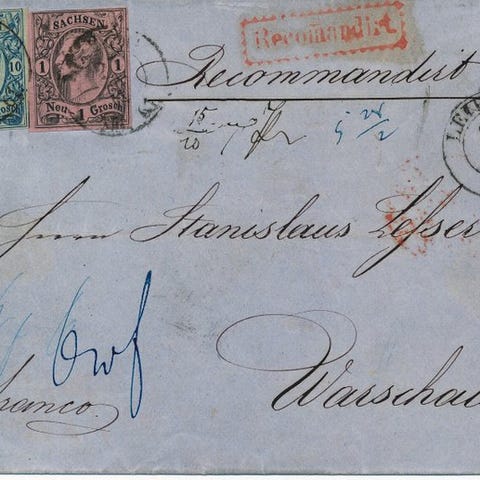 10
SACHSEN
1 1
Neu- 1 Grosch
Recomandirt.
Recommandirt
15
20
5 28/2
LEI
Herrn Stanislaus Lesser
6 wf
franco.
Warschau